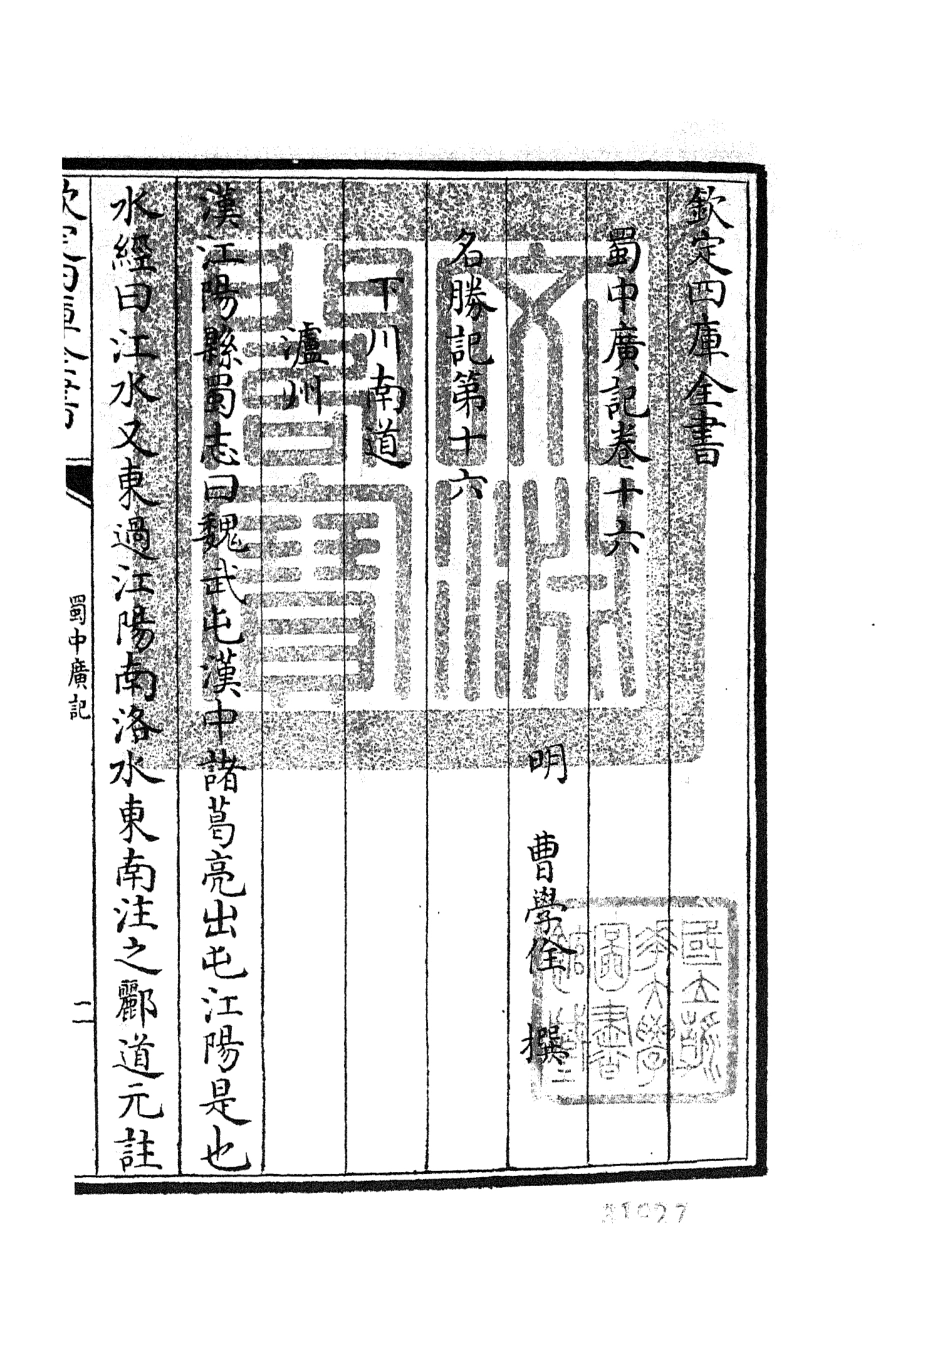 欽定四庫全書
蜀中廣記卷十六
明 曹學佺 撰
名勝記第十六
下川南道
瀘州
漢江陽縣蜀志曰魏武屯漢中諸葛亮出屯江陽是也
水經曰江水又東過江陽南洛水東南注之酈道元註
欽定四庫全書
蜀中廣記
文淵閣寶
國立浙江大學圖書館藏
31927